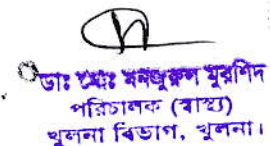 ডাঃ মোঃ মনজুরুল মুরশিদ
পরিচালক (স্বাস্থ্য)
খুলনা বিভাগ, খুলনা।